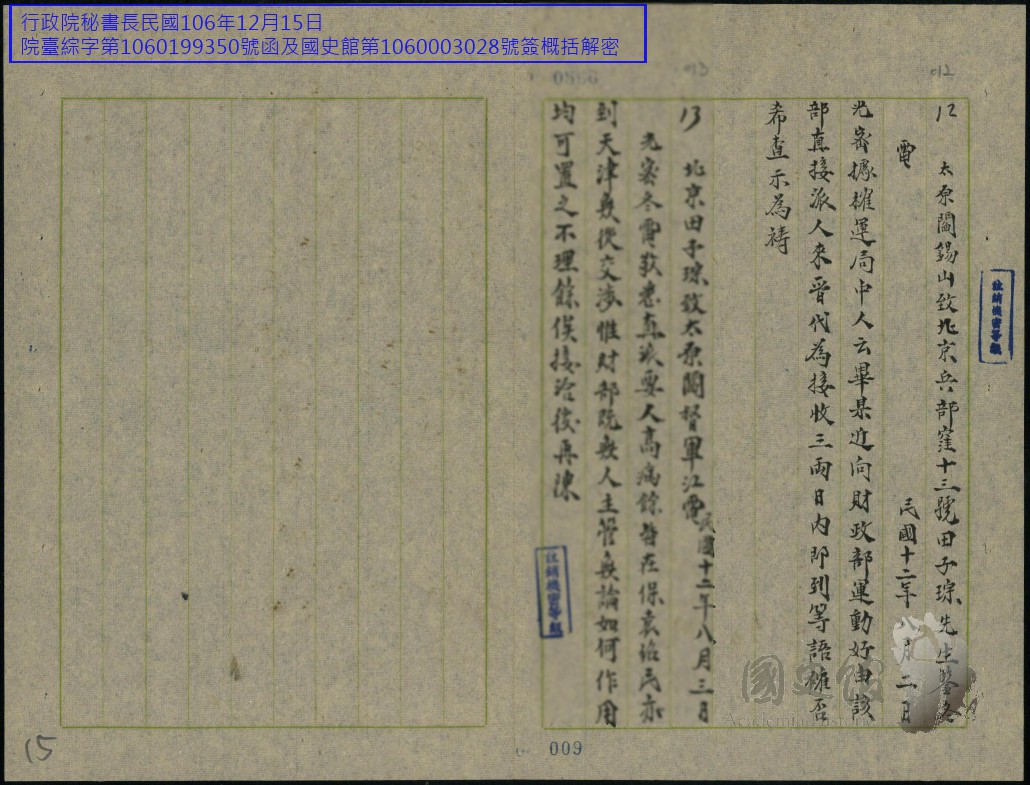 行政院秘書長民國106年12月15日
院臺綜字第1060199350號函及國史館第1060003028號簽概括解密
012
12
太原閻錫山致北京兵部窪十三號田子琮先生鑒冬
電 民國十二年八月二日
先密據榷運局中人云畢某近向財政部運動好由該
部直接派人來晉代為接收三兩日內即到等語確否
希查示為禱
註銷機密等級
013
13
北京田子琮致太原閻督軍江電 民國十二年八月三日
先密冬電敬悉直派要人高病餘皆在保袁治民亦
到天津無從交涉惟財部既無人主管無論如何作用
均可置之不理餘俟接洽後再陳
註銷機密等級
國史館
Academia Historica
009
15